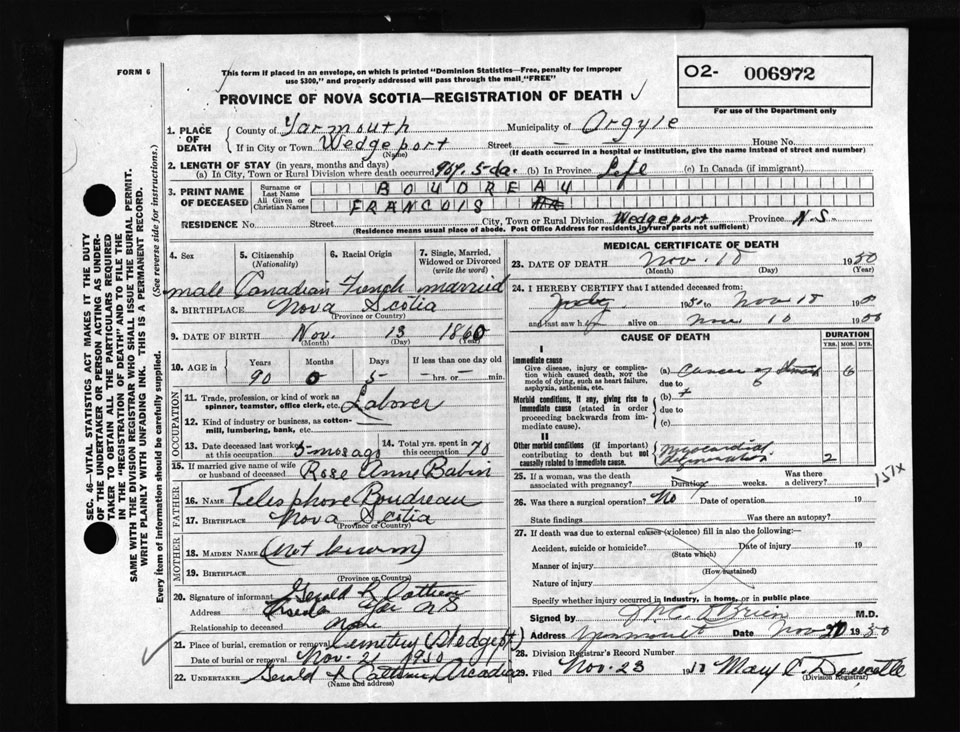 FORM 6
This form if placed in an envelope, on which is printed "Dominion Statistics—Free, penalty for improper
use $300," and properly addressed will pass through the mail "FREE"
O2- 006972
PROVINCE OF NOVA SCOTIA—REGISTRATION OF DEATH
For use of the Department only
1. PLACE OF DEATH
County of Yarmouth Municipality of Argyle
If in City or Town Wedgeport Street — — House No.
(Name) (If death occurred in a hospital or institution, give the name instead of street and number)
2. LENGTH OF STAY (in years, months and days)
(a) In City, Town or Rural Division where death occurred 90y. 5-da. (b) In Province Life (c) In Canada (if immigrant)
3. PRINT NAME OF DECEASED
Surname or Last Name BOUDREAU
All Given or Christian Names FRANCOIS
RESIDENCE No. Street City, Town or Rural Division Wedgeport Province N.S.
(Residence means usual place of abode. Post Office Address for residents in rural parts not sufficient)
4. Sex 5. Citizenship (Nationality) 6. Racial Origin 7. Single, Married, Widowed or Divorced (write the word)
male Canadian French married
8. BIRTHPLACE Nova Scotia
(Province or Country)
9. DATE OF BIRTH Nov. 13 1860
(Month) (Day) (Year)
10. AGE in Years Months Days If less than one day old
90 0 5 — hrs. or — min.
OCCUPATION
11. Trade, profession, or kind of work as
spinner, teamster, office clerk, etc. Laborer
12. Kind of industry or business, as cotton-
mill, lumbering, bank, etc.
13. Date deceased last worked at this occupation 5 mos ago 14. Total yrs. spent in this occupation 70
15. If married give name of wife or husband of deceased Rose Anne Babin
FATHER
16. NAME Telesphore Boudreau
17. BIRTHPLACE Nova Scotia
(Province or Country)
MOTHER
18. MAIDEN NAME (not known)
19. BIRTHPLACE
(Province or Country)
20. Signature of informant Gerald R
Address Yar NS
Relationship to deceased None
21. Place of burial, cremation or removal Cemetery (Wedgept.)
Date of burial or removal Nov. 21 1950
22. UNDERTAKER Gerald R Arcadia
(Name and address)
MEDICAL CERTIFICATE OF DEATH
23. DATE OF DEATH Nov. 18 1950
(Month) (Day) (Year)
24. I HEREBY CERTIFY that I attended deceased from:
1950 to Nov 18
and last saw h alive on Nov 10 19
CAUSE OF DEATH DURATION
YRS. MOS. DYS.
I
Immediate cause
Give disease, injury or complica-
tion which caused death, not the
mode of dying, such as heart failure,
asphyxia, asthenia, etc.
(a) Cancer of Stomach 6
due to
Morbid conditions, if any, giving rise to
immediate cause (stated in order
proceeding backwards from im-
mediate cause).
(b)
due to
(c)
II
Other morbid conditions (if important)
contributing to death but not
causally related to immediate cause.
Myocardial
Degeneration 2
151x
25. If a woman, was the death associated with pregnancy? Duration weeks. Was there a delivery?
26. Was there a surgical operation? No Date of operation 19
State findings Was there an autopsy?
27. If death was due to external causes (violence) fill in also the following:—
Accident, suicide or homicide? Date of injury 19
(State which)
Manner of injury
(How sustained)
Nature of injury
Specify whether injury occurred in industry, in home, or in public place
Signed by O'Brien M.D.
Address Date Nov 20 1950
28. Division Registrar's Record Number
29. Filed Nov. 23 19 Mary C Doucette
(Division Registrar)
SEC. 46—VITAL STATISTICS ACT MAKES IT THE DUTY
OF THE UNDERTAKER OR PERSON ACTING AS UNDER-
TAKER TO OBTAIN ALL THE PARTICULARS REQUIRED
IN THE "REGISTRATION OF DEATH" AND TO FILE THE
SAME WITH THE DIVISION REGISTRAR WHO SHALL ISSUE THE BURIAL PERMIT.
WRITE PLAINLY WITH UNFADING INK. THIS IS A PERMANENT RECORD.
Every item of information should be carefully supplied. (See reverse side for instructions.)